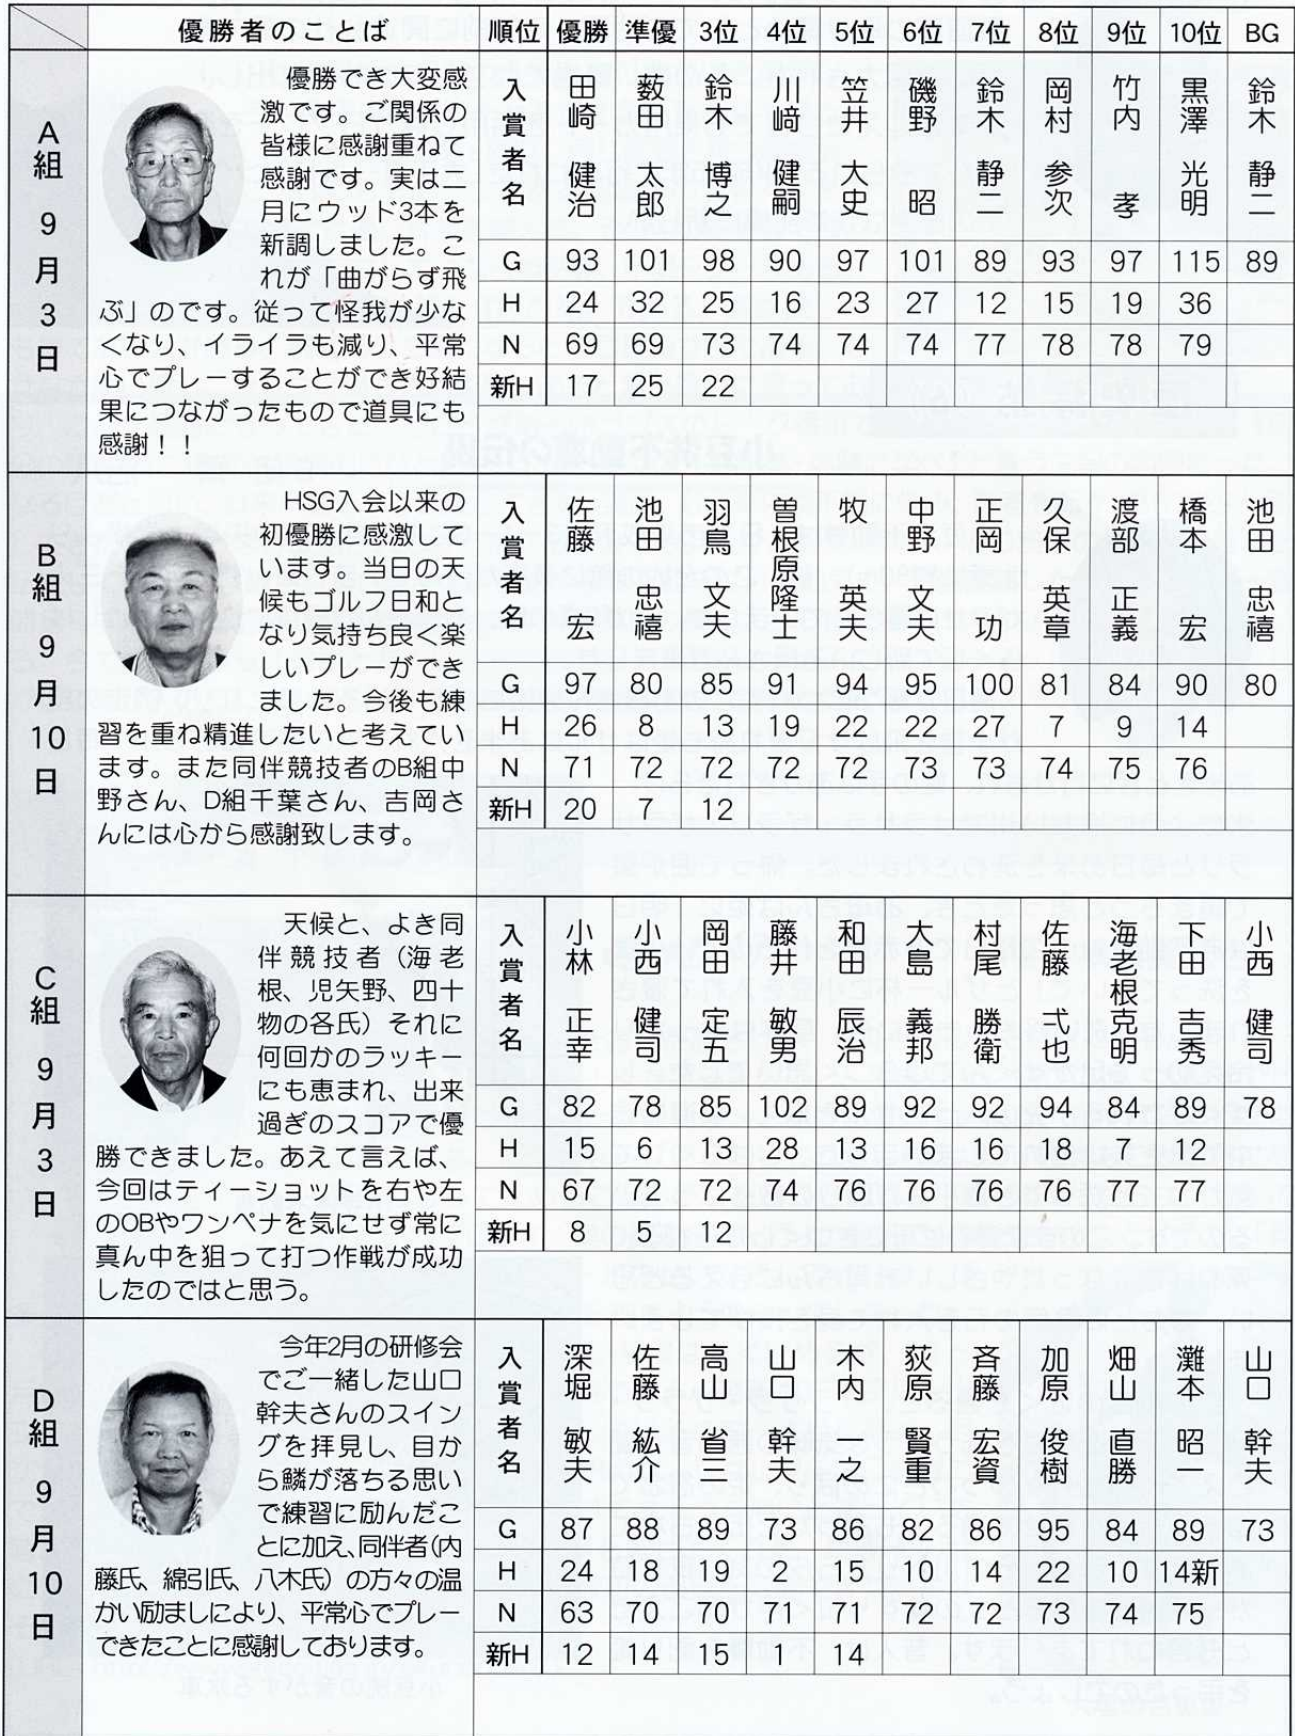 優勝者のことば 順位 優勝 準優 3位 4位 5位 6位 7位 8位 9位 10位 BG
A組 9月3日
優勝でき大変感
激です。ご関係の
皆様に感謝重ねて
感謝です。実は二
月にウッド3本を
新調しました。こ
れが「曲がらず飛
ぶ」のです。従って怪我が少な
くなり、イライラも減り、平常
心でプレーすることができ好結
果につながったもので道具にも
感謝！！
入賞者名 田崎 健治 薮田 太郎 鈴木 博之 川﨑 健嗣 笠井 大史 磯野 昭 鈴木 静二 岡村 参次 竹内 孝 黒澤 光明 鈴木 静二
G 93 101 98 90 97 101 89 93 97 115 89
H 24 32 25 16 23 27 12 15 19 36
N 69 69 73 74 74 74 77 78 78 79
新H 17 25 22
B組 9月10日
HSG入会以来の
初優勝に感激して
います。当日の天
候もゴルフ日和と
なり気持ち良く楽
しいプレーができ
ました。今後も練
習を重ね精進したいと考えてい
ます。また同伴競技者のB組中
野さん、D組千葉さん、吉岡さ
んには心から感謝致します。
入賞者名 佐藤 宏 池田 忠禧 羽鳥 文夫 曽根原隆士 牧 英夫 中野 文夫 正岡 功 久保 英章 渡部 正義 橋本 宏 池田 忠禧
G 97 80 85 91 94 95 100 81 84 90 80
H 26 8 13 19 22 22 27 7 9 14
N 71 72 72 72 72 73 73 74 75 76
新H 20 7 12
C組 9月3日
天候と、よき同
伴競技者（海老
根、児矢野、四十
物の各氏）それに
何回かのラッキー
にも恵まれ、出来
過ぎのスコアで優
勝できました。あえて言えば、
今回はティーショットを右や左
のOBやワンペナを気にせず常に
真ん中を狙って打つ作戦が成功
したのではと思う。
入賞者名 小林 正幸 小西 健司 岡田 定五 藤井 敏男 和田 辰治 大島 義邦 村尾 勝衛 佐藤 弌也 海老根克明 下田 吉秀 小西 健司
G 82 78 85 102 89 92 92 94 84 89 78
H 15 6 13 28 13 16 16 18 7 12
N 67 72 72 74 76 76 76 76 77 77
新H 8 5 12
D組 9月10日
今年2月の研修会
でご一緒した山口
幹夫さんのスイン
グを拝見し、目か
ら鱗が落ちる思い
で練習に励んだこ
とに加え、同伴者（内
藤氏、綿引氏、八木氏）の方々の温
かい励ましにより、平常心でプレー
できたことに感謝しております。
入賞者名 深堀 敏夫 佐藤 紘介 高山 省三 山口 幹夫 木内 一之 荻原 賢重 斉藤 宏資 加原 俊樹 畑山 直勝 灘本 昭一 山口 幹夫
G 87 88 89 73 86 82 86 95 84 89 73
H 24 18 19 2 15 10 14 22 10 14新
N 63 70 70 71 71 72 72 73 74 75
新H 12 14 15 1 14